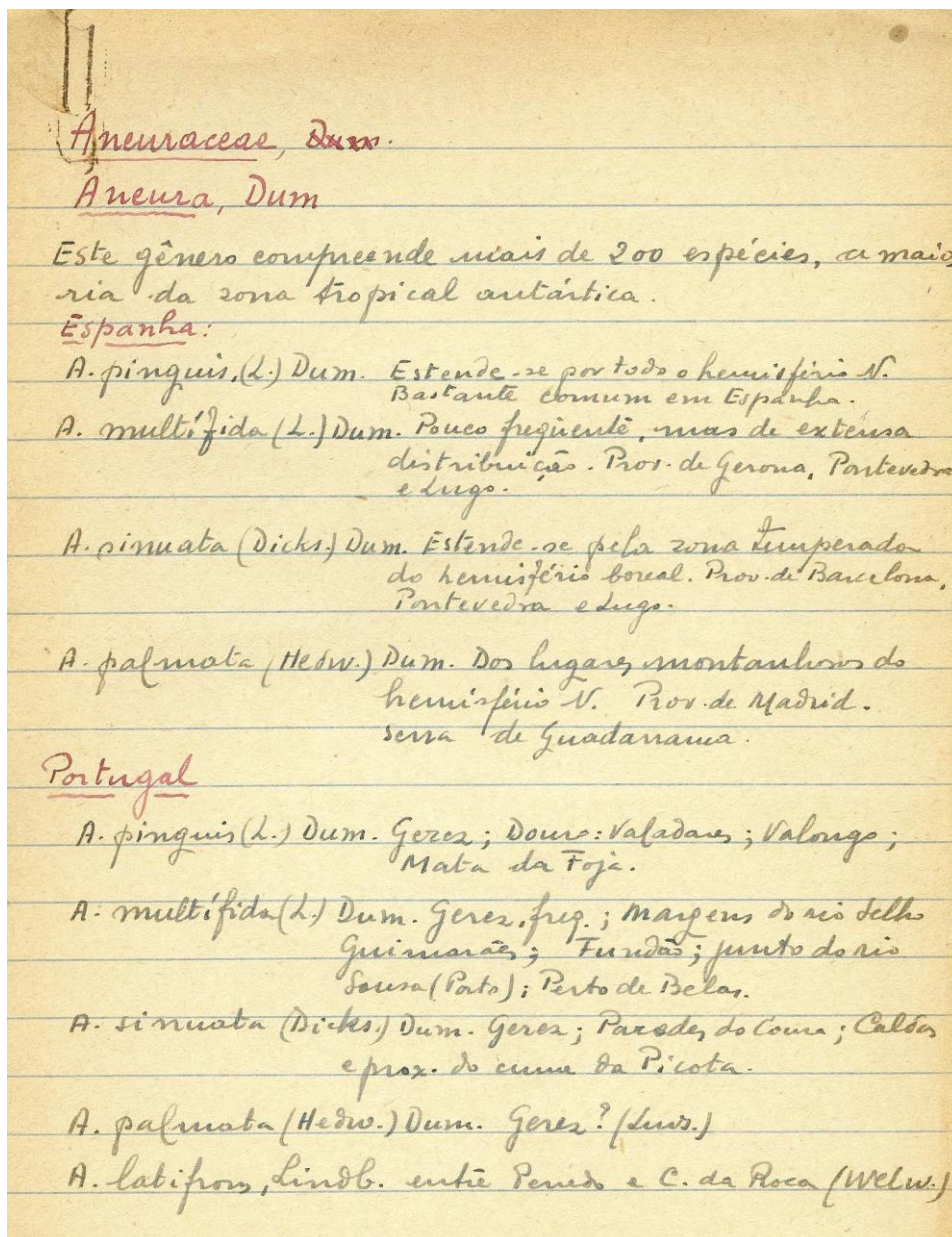 Aneuraceae, Dum.
Aneura, Dum
Este gênero compreende mais de 200 espécies, a maio
ria da zona tropical antártica.
Espanha:
A. pinguis, (L.) Dum. Estende-se por todo o hemisfério N.
Bastante comum em Espanha.
A. multífida (L.) Dum. Pouco freqüente, mas de extensa
distribuição. Prov. de Gerona, Pontevedra
e Lugo.
A. sinuata (Dicks.) Dum. Estende-se pela zona temperada
do hemisfério boreal. Prov. de Barcelona,
Pontevedra e Lugo.
A. palmata (Hedw.) Dum. Dos lugares montanhosos do
hemisfério N. Prov. de Madrid.
serra de Guadarrama.
Portugal
A. pinguis (L.) Dum. Gerez; Douro: Valadares; Valongo;
Mata da Foja.
A. multífida (L.) Dum. Gerez, freq.; Margens do rio Selho
Guimarães; Fundão; junto do rio
Sousa (Porto); Perto de Belas.
A. sinuata (Dicks.) Dum. Gerez; Paredes do Coura; Caldas
e prox. do cume da Picota.
A. palmata (Hedw.) Dum. Gerez?
A. latifrons, Lindb. entre Penedo e C. da Roca (Welw.)